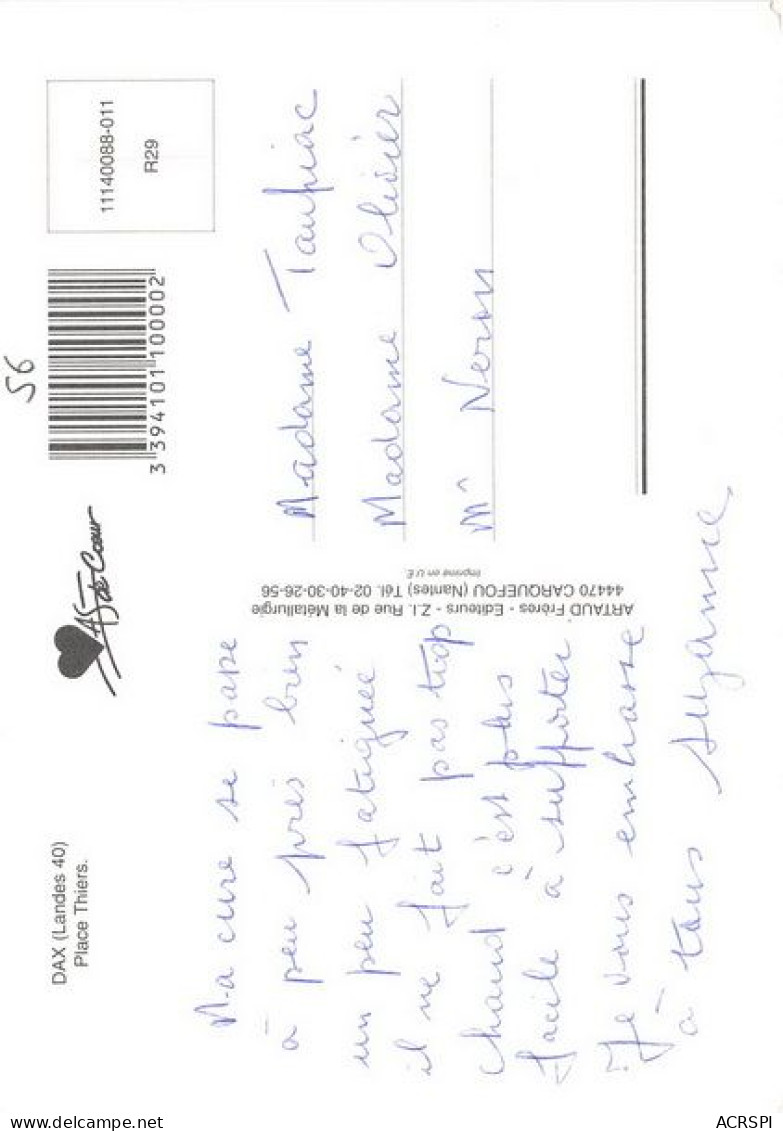 DAX (Landes 40)
Place Thiers.
As de Cœur
3 394101 100002
56
11140088-011
R29
Ma cure se passe
à peu près bien
un peu fatiguée
il ne fait pas trop
chaud c'est plus
facile à supporter
Je vous embrasse
à tous Suzanne
ARTAUD Frères - Editeurs - Z.I. Rue de la Métallurgie
44470 CARQUEFOU (Nantes) Tél. 02-40-30-26-56
Imprimé en U.E.
Madame Taupiac
Madame Olivier
Mr Neron
delcampe.net
ACRSPI